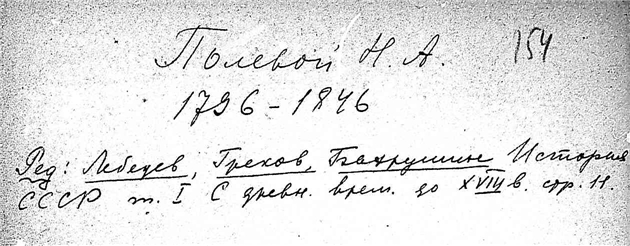 Полевой Н. А. 154
1796 - 1846
Ред: Лебедев, Греков, Бахрушин История
СССР т. I С древн. врем. до XVIII в. стр. 11.